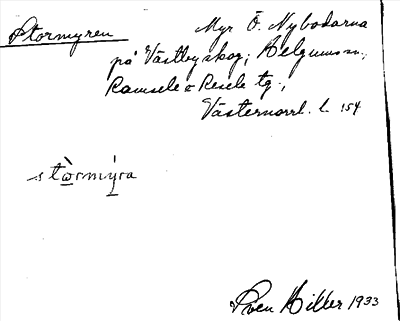 Stormyren
Myr Ö. Nybodarna
på Västbyskog; Helgums sn.,
Ramsele & Resele tg.,
Västernorrl. l. 154
stòrmýra
Sven Hiller 1933